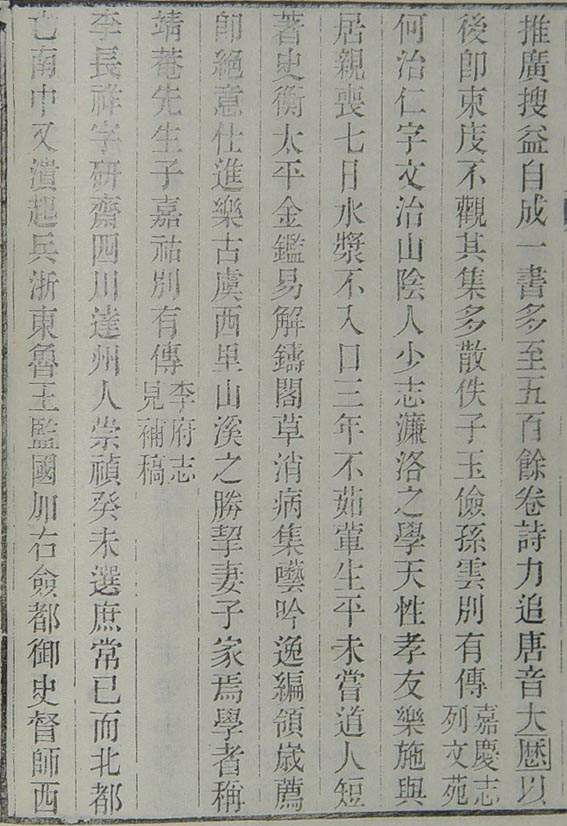 推廣搜益自成一書多至五百餘卷詩力追唐音大厯以
後卽束庋不觀其集多散佚子玉儉孫雲別有傳嘉慶志列文苑
何治仁字文治山陰人少志濂洛之學天性孝友樂施與
居親喪七日水漿不入口三年不茹葷生平未嘗道人短
著史衡太平金鑑易解鑄閣草消病集囈吟逸編領歲薦
卽絕意仕進樂古虞西里山溪之勝挈妻子家焉學者稱
靖菴先生子嘉祐別有傳李府志見補稿
李長祥字研齋四川達州人崇禎癸未選庶常已而北都
亡南中又潰起兵浙東魯王監國加右僉都御史督師西